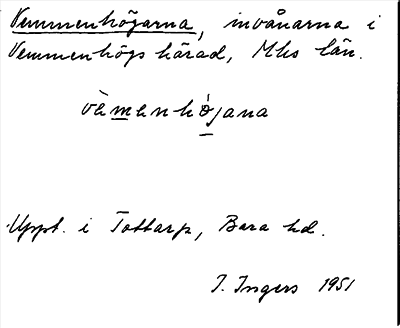 Vemmenhögarna, invånarna i
Vemmenhögs härad, Mhs län.
vèmenhö́jana
Uppt. i Tottarp, Bara hd.
I. Ingers 1951